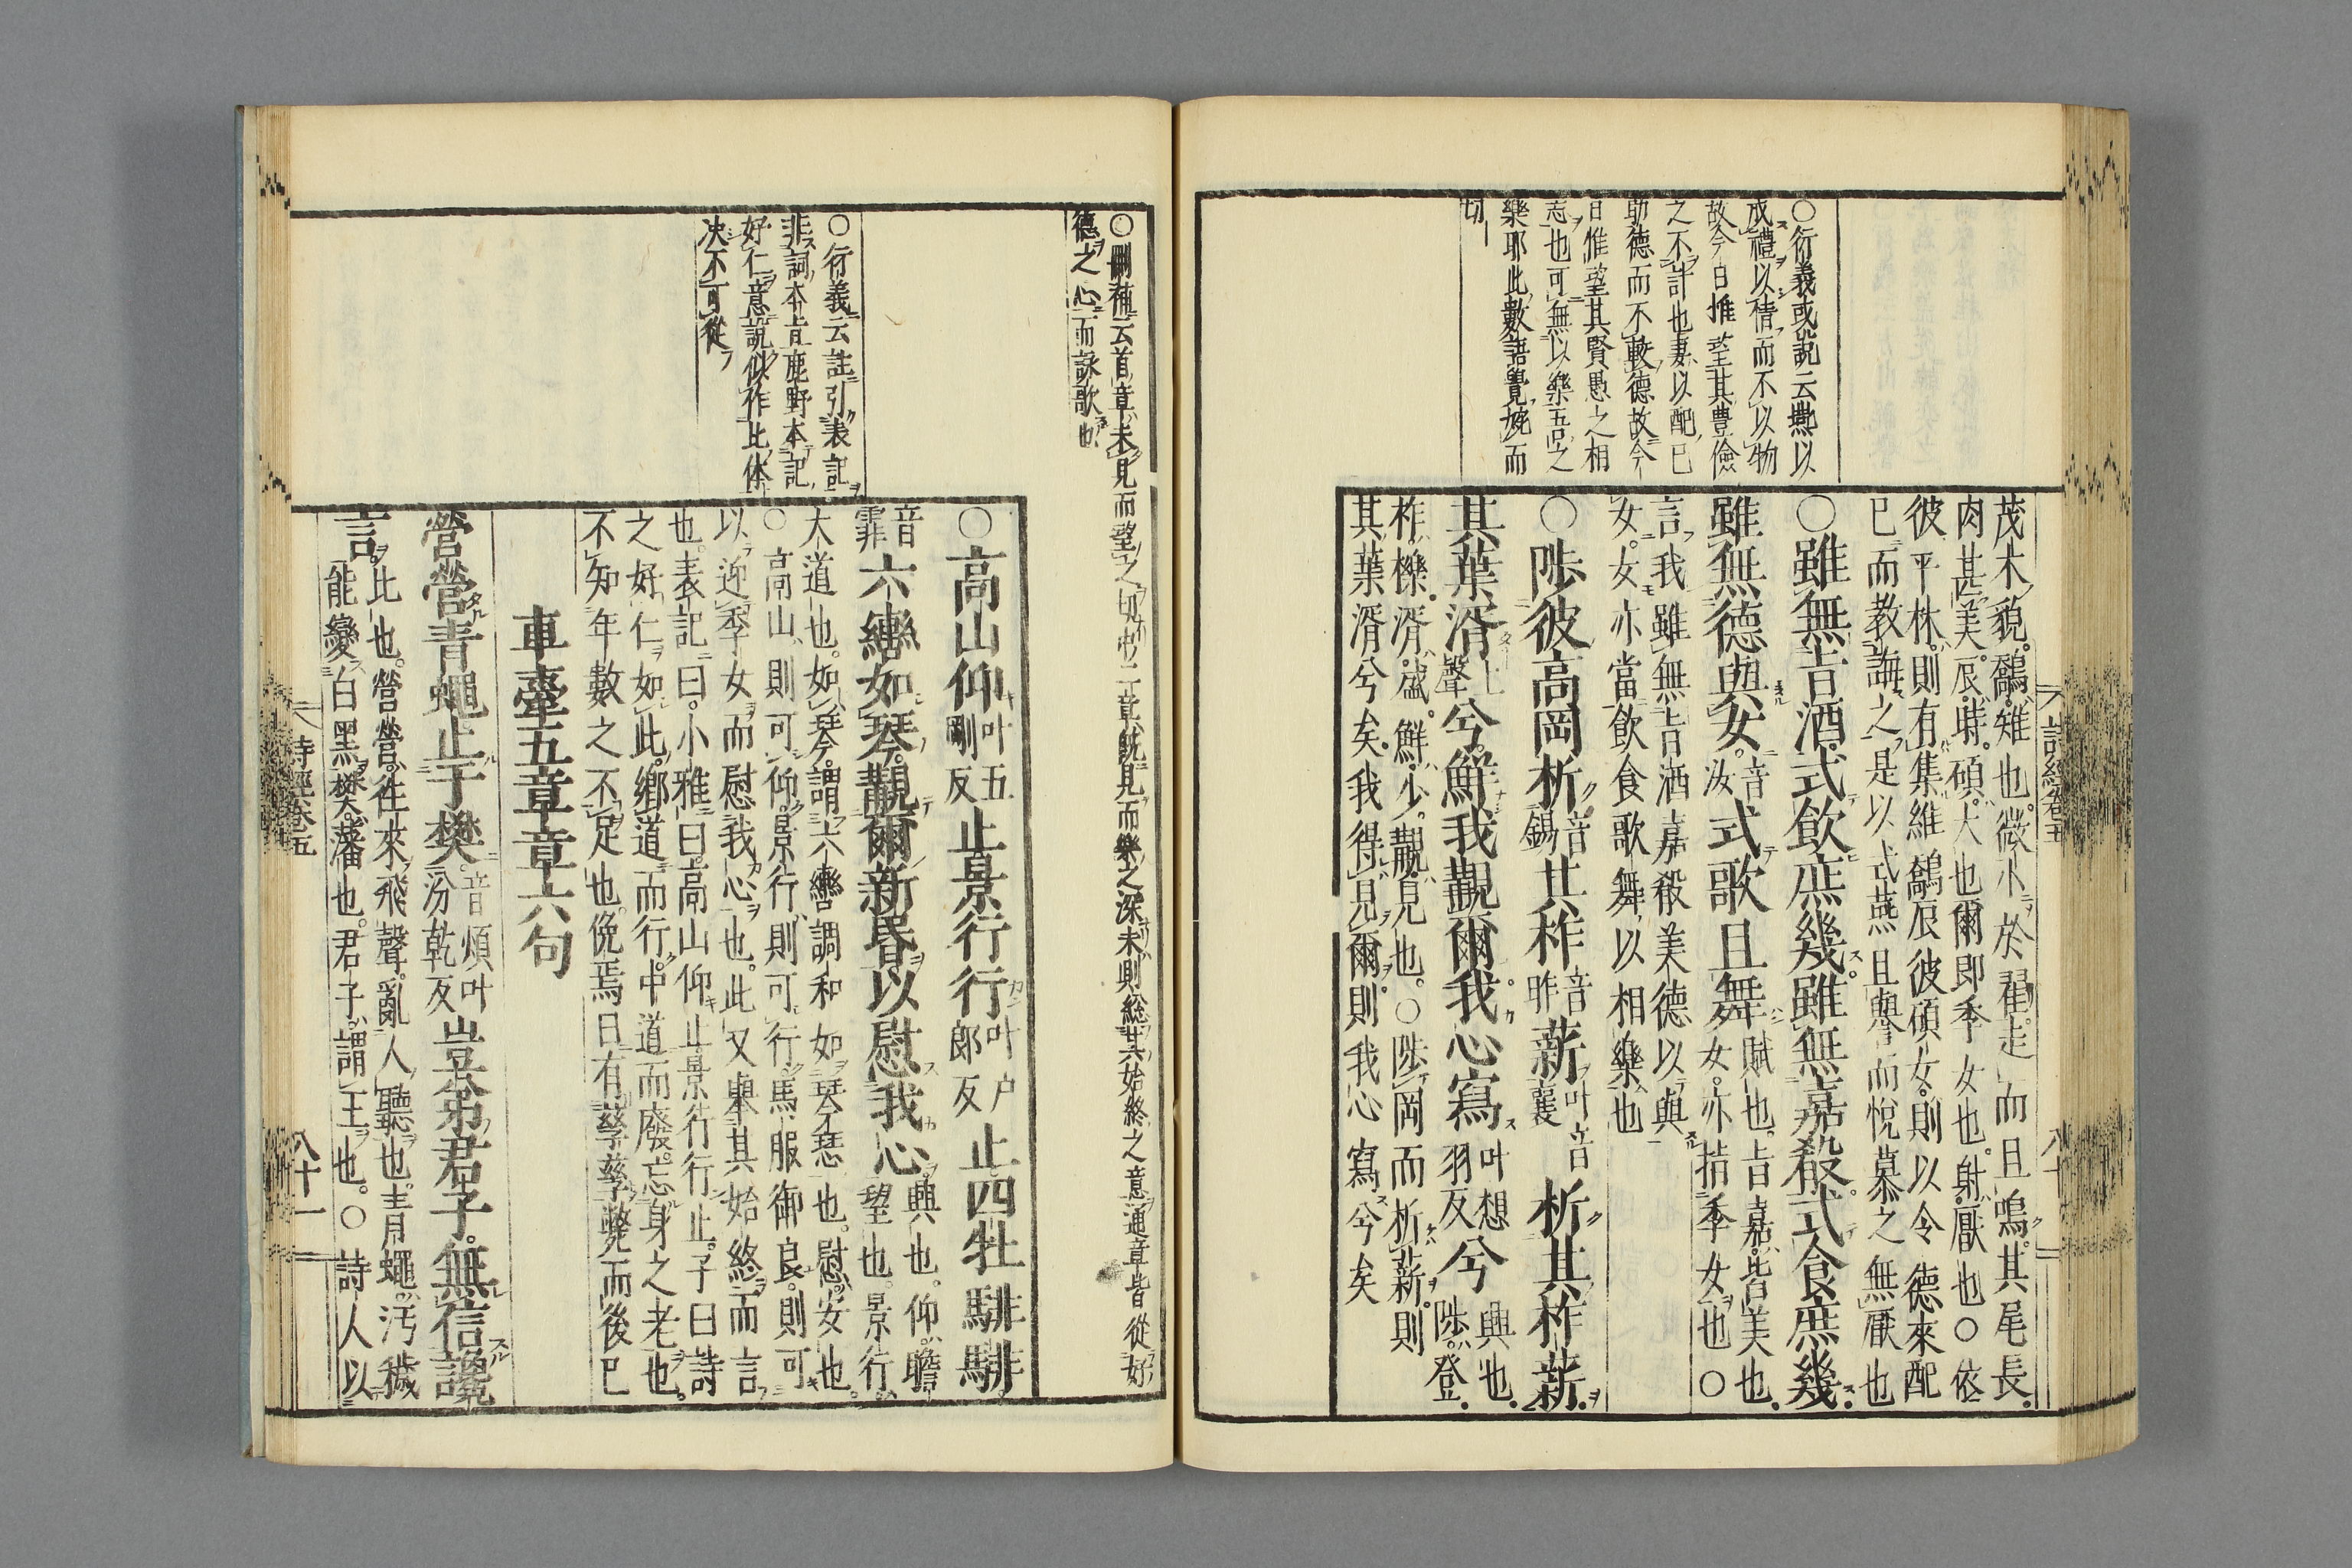 ○衍義或説云燕以
成禮以情而不以物
故今日惟望其豊儉
之不計也妻以配已
助德而不敵德故今
日惟望其賢愚之相
志也可無以樂吾之
樂耶此數語覺婉而
切
茂木貌。鷮雉也。微小於翟走而且鳴。其尾長。
肉甚美辰。時。碩。大也爾即季女也。射。厭也○依
彼平林。則有集維鷮辰彼碩女。則以令德來配
已而教誨之是以式燕且譽而悦慕之無厭也
○雖無旨酒式飲庶幾。雖無嘉殽。式食庶幾。
雖無德與女。音汝式歌且舞賦也。旨嘉。皆美也。女。亦指季女也○
言我雖無旨酒嘉殽美德以與
女。女亦當飲食歌舞以相樂也
○陟彼高岡析音錫其柞音昨薪叶音襄析其柞薪。
其葉湑上聲兮鮮我覯爾我心寫叶想羽反兮興也。陟。登。
柞。櫟。湑。盛。鮮。少。覯。見也。○陟岡而析薪。則
其葉湑兮矣。我得見爾。則我心寫兮矣
詩經卷五
八十
○刪補云首章未見而望之切中二章既見而樂之深未則総其始終之意通章皆從好
德之心而詠歌也
○衍義云註引表記
非詞本旨鹿野本記
好仁意説似祚比体
决不可從
○高山仰叶五剛反止景行行叶户郎反止四牡騑騑
音霏六轡如琴。覯爾新昏以慰我心。興也。仰。瞻望也。景行。
大道也。如琴。謂六轡調和如琴瑟也。慰。安也。
○高山則可仰。景行則可行。馬服御良。則可
以迎季女而慰我心也。此又擧其始終而言
也。表記曰。小雅曰。高山仰止景行行止。子曰詩
之好仁如此。鄉道而行。中道而廢。忘身之老也。
不知年數之不足也。俛焉日有孳孳斃而後已
車舝五章章六句
營營青蠅止于樊。音煩叶汾乾反豈弟君子。無信讒
言。比也。營營。往來飛聲。亂人聽也。青蠅。汚穢
能變白黑。樊。藩也。君子。謂王也。○詩人以
詩經卷五
八十一